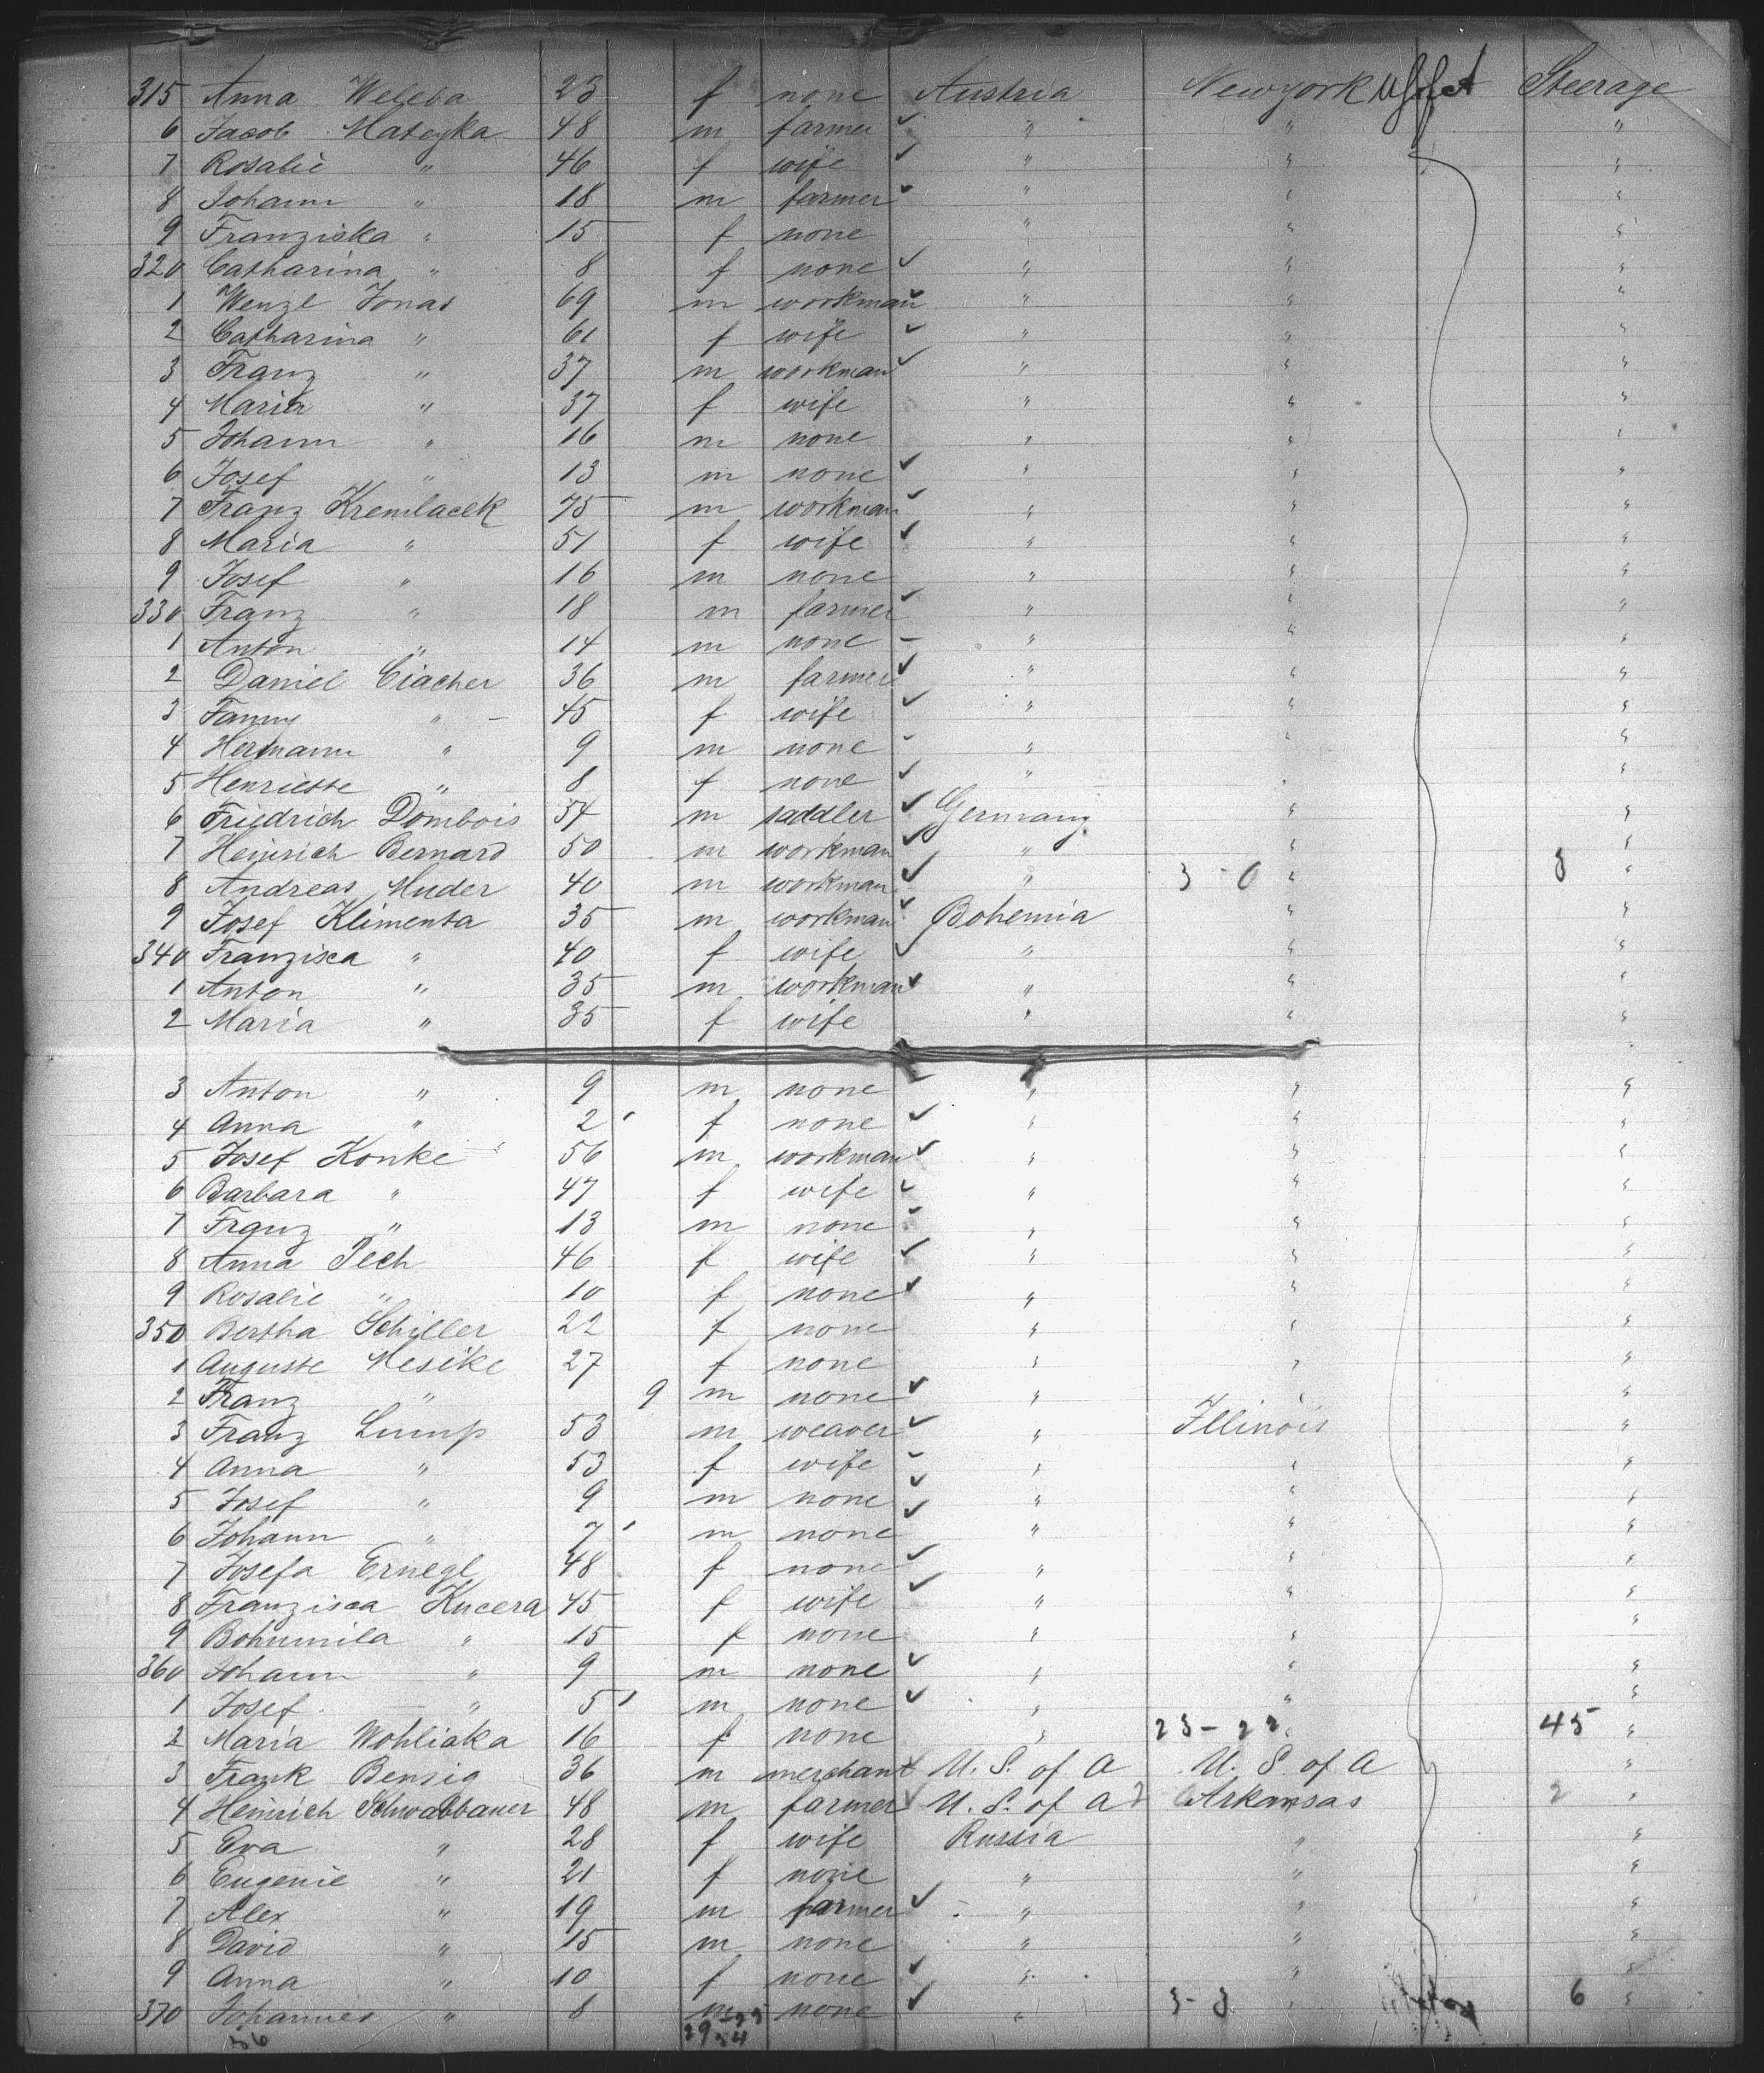 315 Anna Weleba 23 f none Austria Newyork Steerage
6 Jacob Mateyka 48 m farmer ✓ " " "
7 Rosalie " 46 f wife ✓ " " "
8 Johann " 18 m farmer ✓ " " "
9 Franziska " 15 f none " " "
320 Catharina " 8 f none ✓ " " "
1 Wenzl Jonas 69 m workman ✓ " " "
2 Catharina " 61 f wife ✓ " " "
3 Franz " 37 m workman ✓ " " "
4 Maria " 37 f wife " " "
5 Johann " 16 m none " " "
6 Josef " 13 m none ✓ " " "
7 Franz Kremlacek 75 m workman ✓ " " "
8 Maria " 51 f wife ✓ " " "
9 Josef " 16 m none " " "
330 Franz " 18 m farmer ✓ " " "
1 Anton " 14 m none – " " "
2 Daniel Ciacher 36 m farmer ✓ " " "
3 Fanny " – 45 f wife ✓ " " "
4 Hermann " 9 m none ✓ " " "
5 Henriette " 8 f none ✓ " " "
6 Friedrich Dombois 54 m saddler ✓ Germany " "
7 Heinrich Bernard 50 m workman ✓ " " "
8 Andreas Muder 40 m workman ✓ " 3 - 0 " 8 "
9 Josef Klimenta 35 m workman ✓ Bohemia " "
340 Franzisca " 40 f wife ✓ " " "
1 Anton " 35 m workman ✓ " " "
2 Maria " 35 f wife " " "
3 Anton " 9 m none ✓ " " "
4 Anna " 2 f none ✓ " " "
5 Josef Konke 56 m workman ✓ " " "
6 Barbara " 47 f wife ✓ " " "
7 Franz " 13 m none ✓ " " "
8 Anna Pech 46 f wife ✓ " " "
9 Rosalie " 10 f none ✓ " " "
350 Bertha Schiller 22 f none " " "
1 Auguste Mesike 27 f none " " "
2 Franz " 9 m none ✓ " " "
3 Franz Lump 53 m weaver ✓ " Illinois "
4 Anna " 53 f wife ✓ " " "
5 Josef " 9 m none ✓ " " "
6 Johann " 7 m none ✓ " " "
7 Josefa Ernegl 48 f none ✓ " " "
8 Franzisca Kucera 45 f wife ✓ " " "
9 Bohumila " 15 f none " " "
360 Johann " 9 m none ✓ " " "
1 Josef " 5 m none ✓ " " "
2 Maria Wohliaka 16 f none " 23 - 22 " 45 "
3 Frank Bensig 36 m merchant U. S. of A U. S. of A "
4 Heinrich Schwabbauer 48 m farmer ✓ U. S. of A Arkansas 2 "
5 Eva " 28 f wife Russia " "
6 Eugenie " 21 f none " " "
7 Alex " 19 m farmer ✓ " " "
8 David " 15 m none " " "
9 Anna " 10 f none ✓ " " "
370 Johannes " 8 m none ✓ " 3 - 3 " 6 "
36 29 34